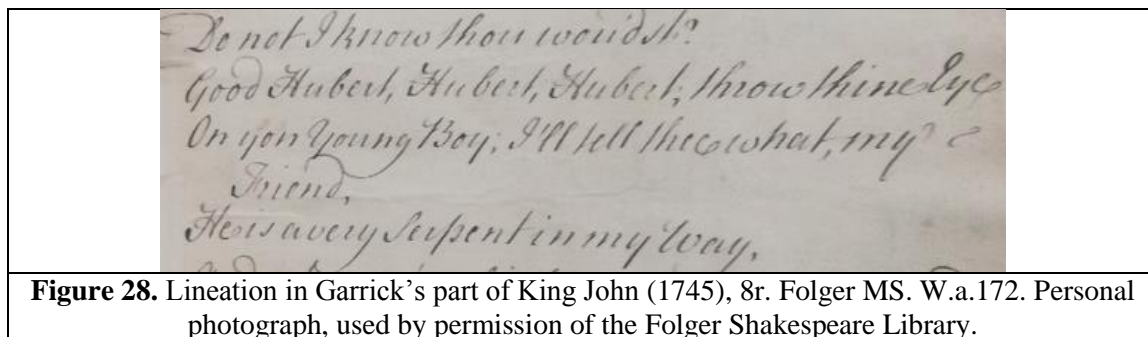 Do not I know thou woudst?
Good Hubert, Hubert, Hubert, throw thine Eye
On yon Young Boy; I'll tell thee what, my
Friend,
He is a very Serpent in my Way,
Figure 28. Lineation in Garrick's part of King John (1745), 8r. Folger MS. W.a.172. Personal
photograph, used by permission of the Folger Shakespeare Library.